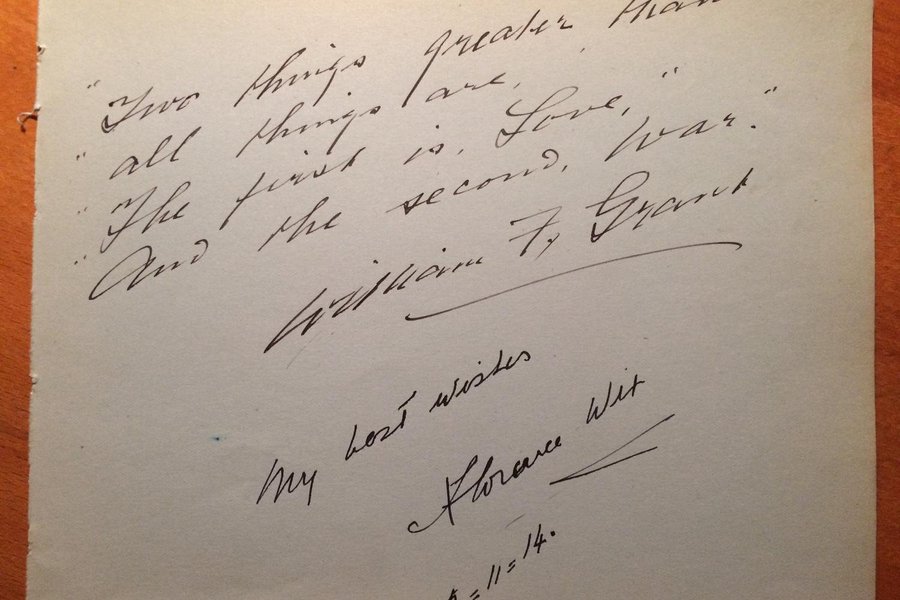 "Two things greater than
"all things are,
"The first is, Love,"
"And the second, War."
William F. Grant
My best wishes
Florence Wix
= 11 = 14.